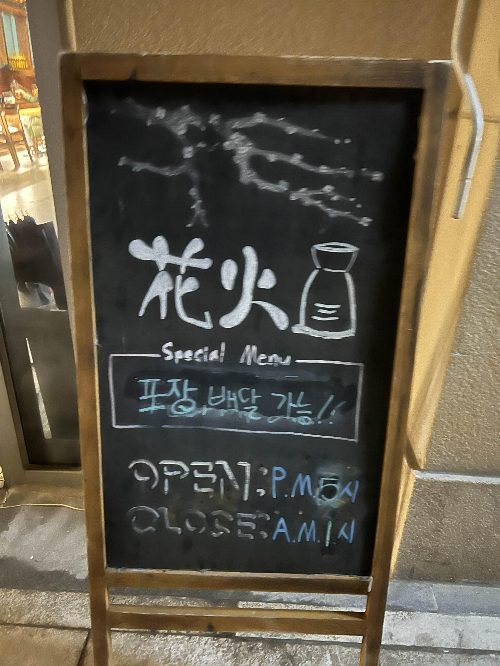 花火
Special Menu
포장, 배달 가능!!
OPEN: P.M 5시
CLOSE: A.M 1시